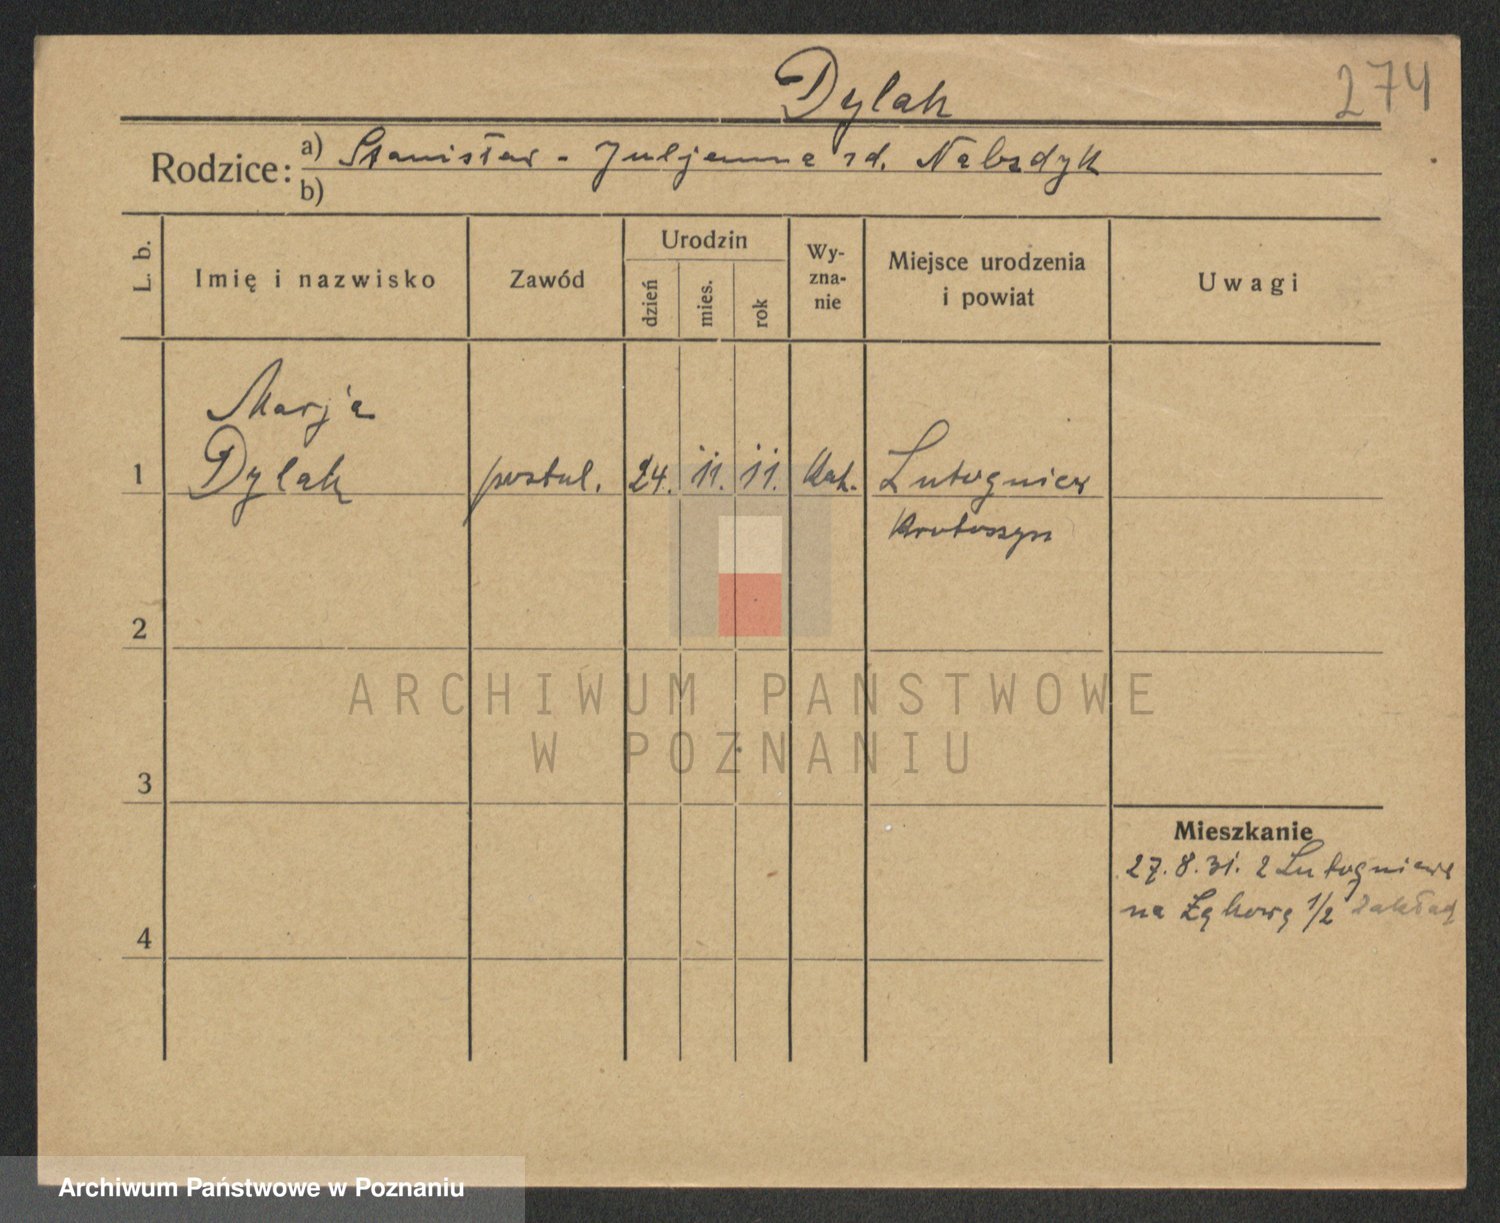 Dylak
274
Rodzice: a) Stanisław - Juljanna rd. Nabzdyk
b)
L. b.
Imię i nazwisko
Zawód
Urodzin
dzień
mies.
rok
Wy-
zna-
nie
Miejsce urodzenia
i powiat
Uwagi
Marja
1 Dylak postul. 24. 11. 11. kat. Lutogniew
Krotoszyn
2
ARCHIWUM PAŃSTWOWE
W POZNANIU
3
Mieszkanie
27.8.31. z Lutogniewa
na Łąkową 1/2 Zakład
4
Archiwum Państwowe w Poznaniu